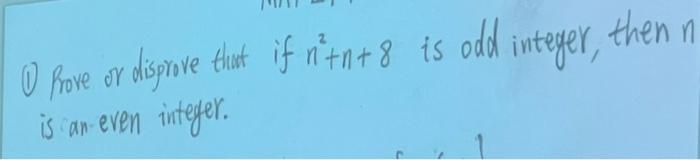 ① Prove or disprove that if n²+n+8 is odd integer, then n
is an even integer.